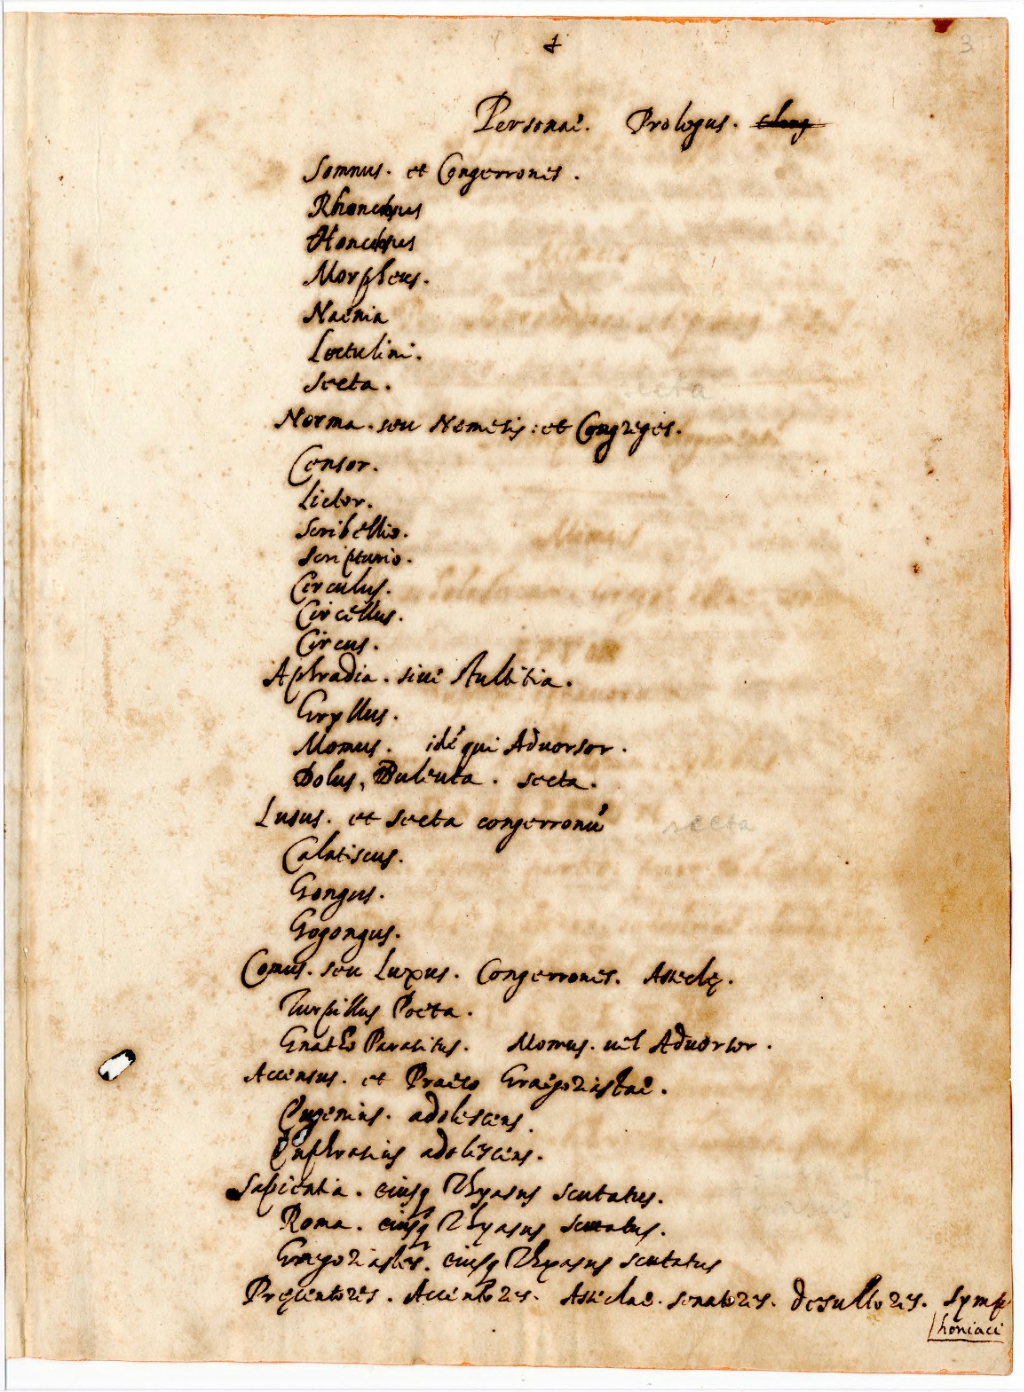 3
Personae. Prologus.
Somnus. et Congerrones.
Rhonchus
Honchus
Morpheus.
Naenia
Lectulini.
secta.
Norma. seu Nemesis: et Congreges.
Censor.
Lictor.
Scribellio.
scripturio.
Circulus.
Circellus.
Circus.
Aphradia. siue stultitia.
Gryllus.
Momus. idē qui Aduorsor.
Dolus, Duleuta. secta.
Lusus. et secta congerronū
secta
Calatiscus.
Gongus.
Gogongus.
Comus. seu Luxus. Congerrones. Aseclę.
Turpillus Poeta.
Gnatho Parasitus. Momus. uel Aduorsor.
Accensus. et Praeco Graegoristae.
Eugenius. adolescens.
Euphrasius adolescens.
Sapientia. eiusq Thyasus scutatus.
Roma. eiusq Thyasus scutatus.
eiusq Thyasus scutatus
Pręcentores. Accentores. Aseclae. senatores. desultores. symp
honiaci